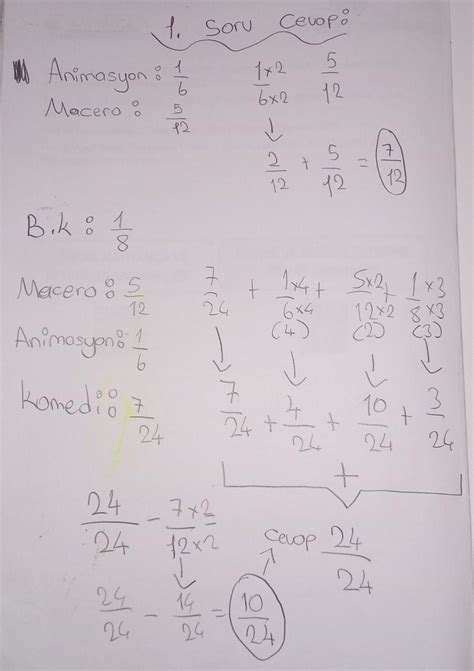 1. Soru Cevap:
Animasyon: 1/6   1×2/6×2   5/12
Macera: 5/12
2/12 + 5/12 = 7/12
B.k: 1/8
Macera: 5/12   7/24 + 1×4/6×4 + 5×2/12×2 + 1×3/8×3
Animasyon: 1/6   (4) (2) (3)
Komedi: 7/24   7/24 + 4/24 + 10/24 + 3/24
+
24/24 - 7×2/12×2   Cevap 24/24
24/24 - 14/24 = 10/24